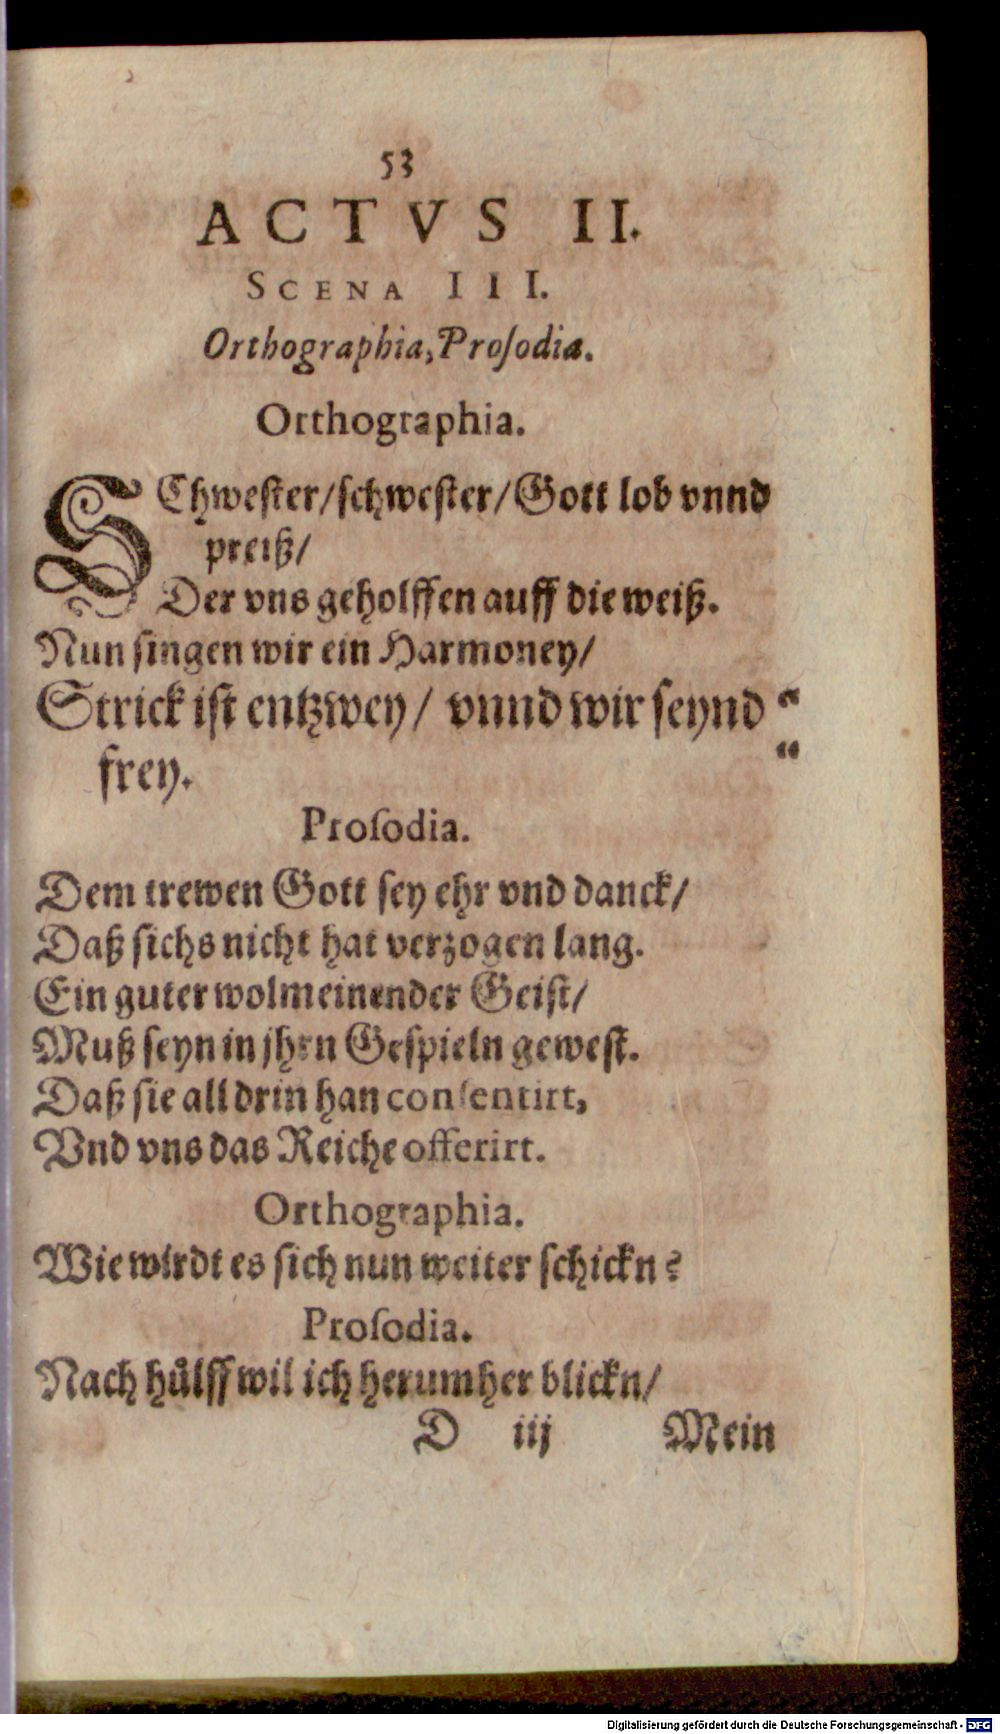 53
ACTVS II.
SCENA III.
Orthographia, Proſodia.
Orthographia.
SChweſter/ſchweſter/Gott lob vnnd
preiß/
Der vns geholffen auff die weiß.
Nun ſingen wir ein Harmoney/
Strick iſt entzwey/ vnnd wir ſeynd "
frey. "
Proſodia.
Dem trewen Gott ſey ehr vnd danck/
Daß ſichs nicht hat verzogen lang.
Ein guter wolmeinender Geiſt/
Muß ſeyn in jhrn Geſpieln geweſt.
Daß ſie all drin han conſentirt,
Vnd vns das Reiche offerirt.
Orthographia.
Wie wirdt es ſich nun weiter ſchickn?
Proſodia.
Nach huͤlff wil ich herumher blickn/
D iij Mein
Digitalisierung gefördert durch die Deutsche Forschungsgemeinschaft - DFG